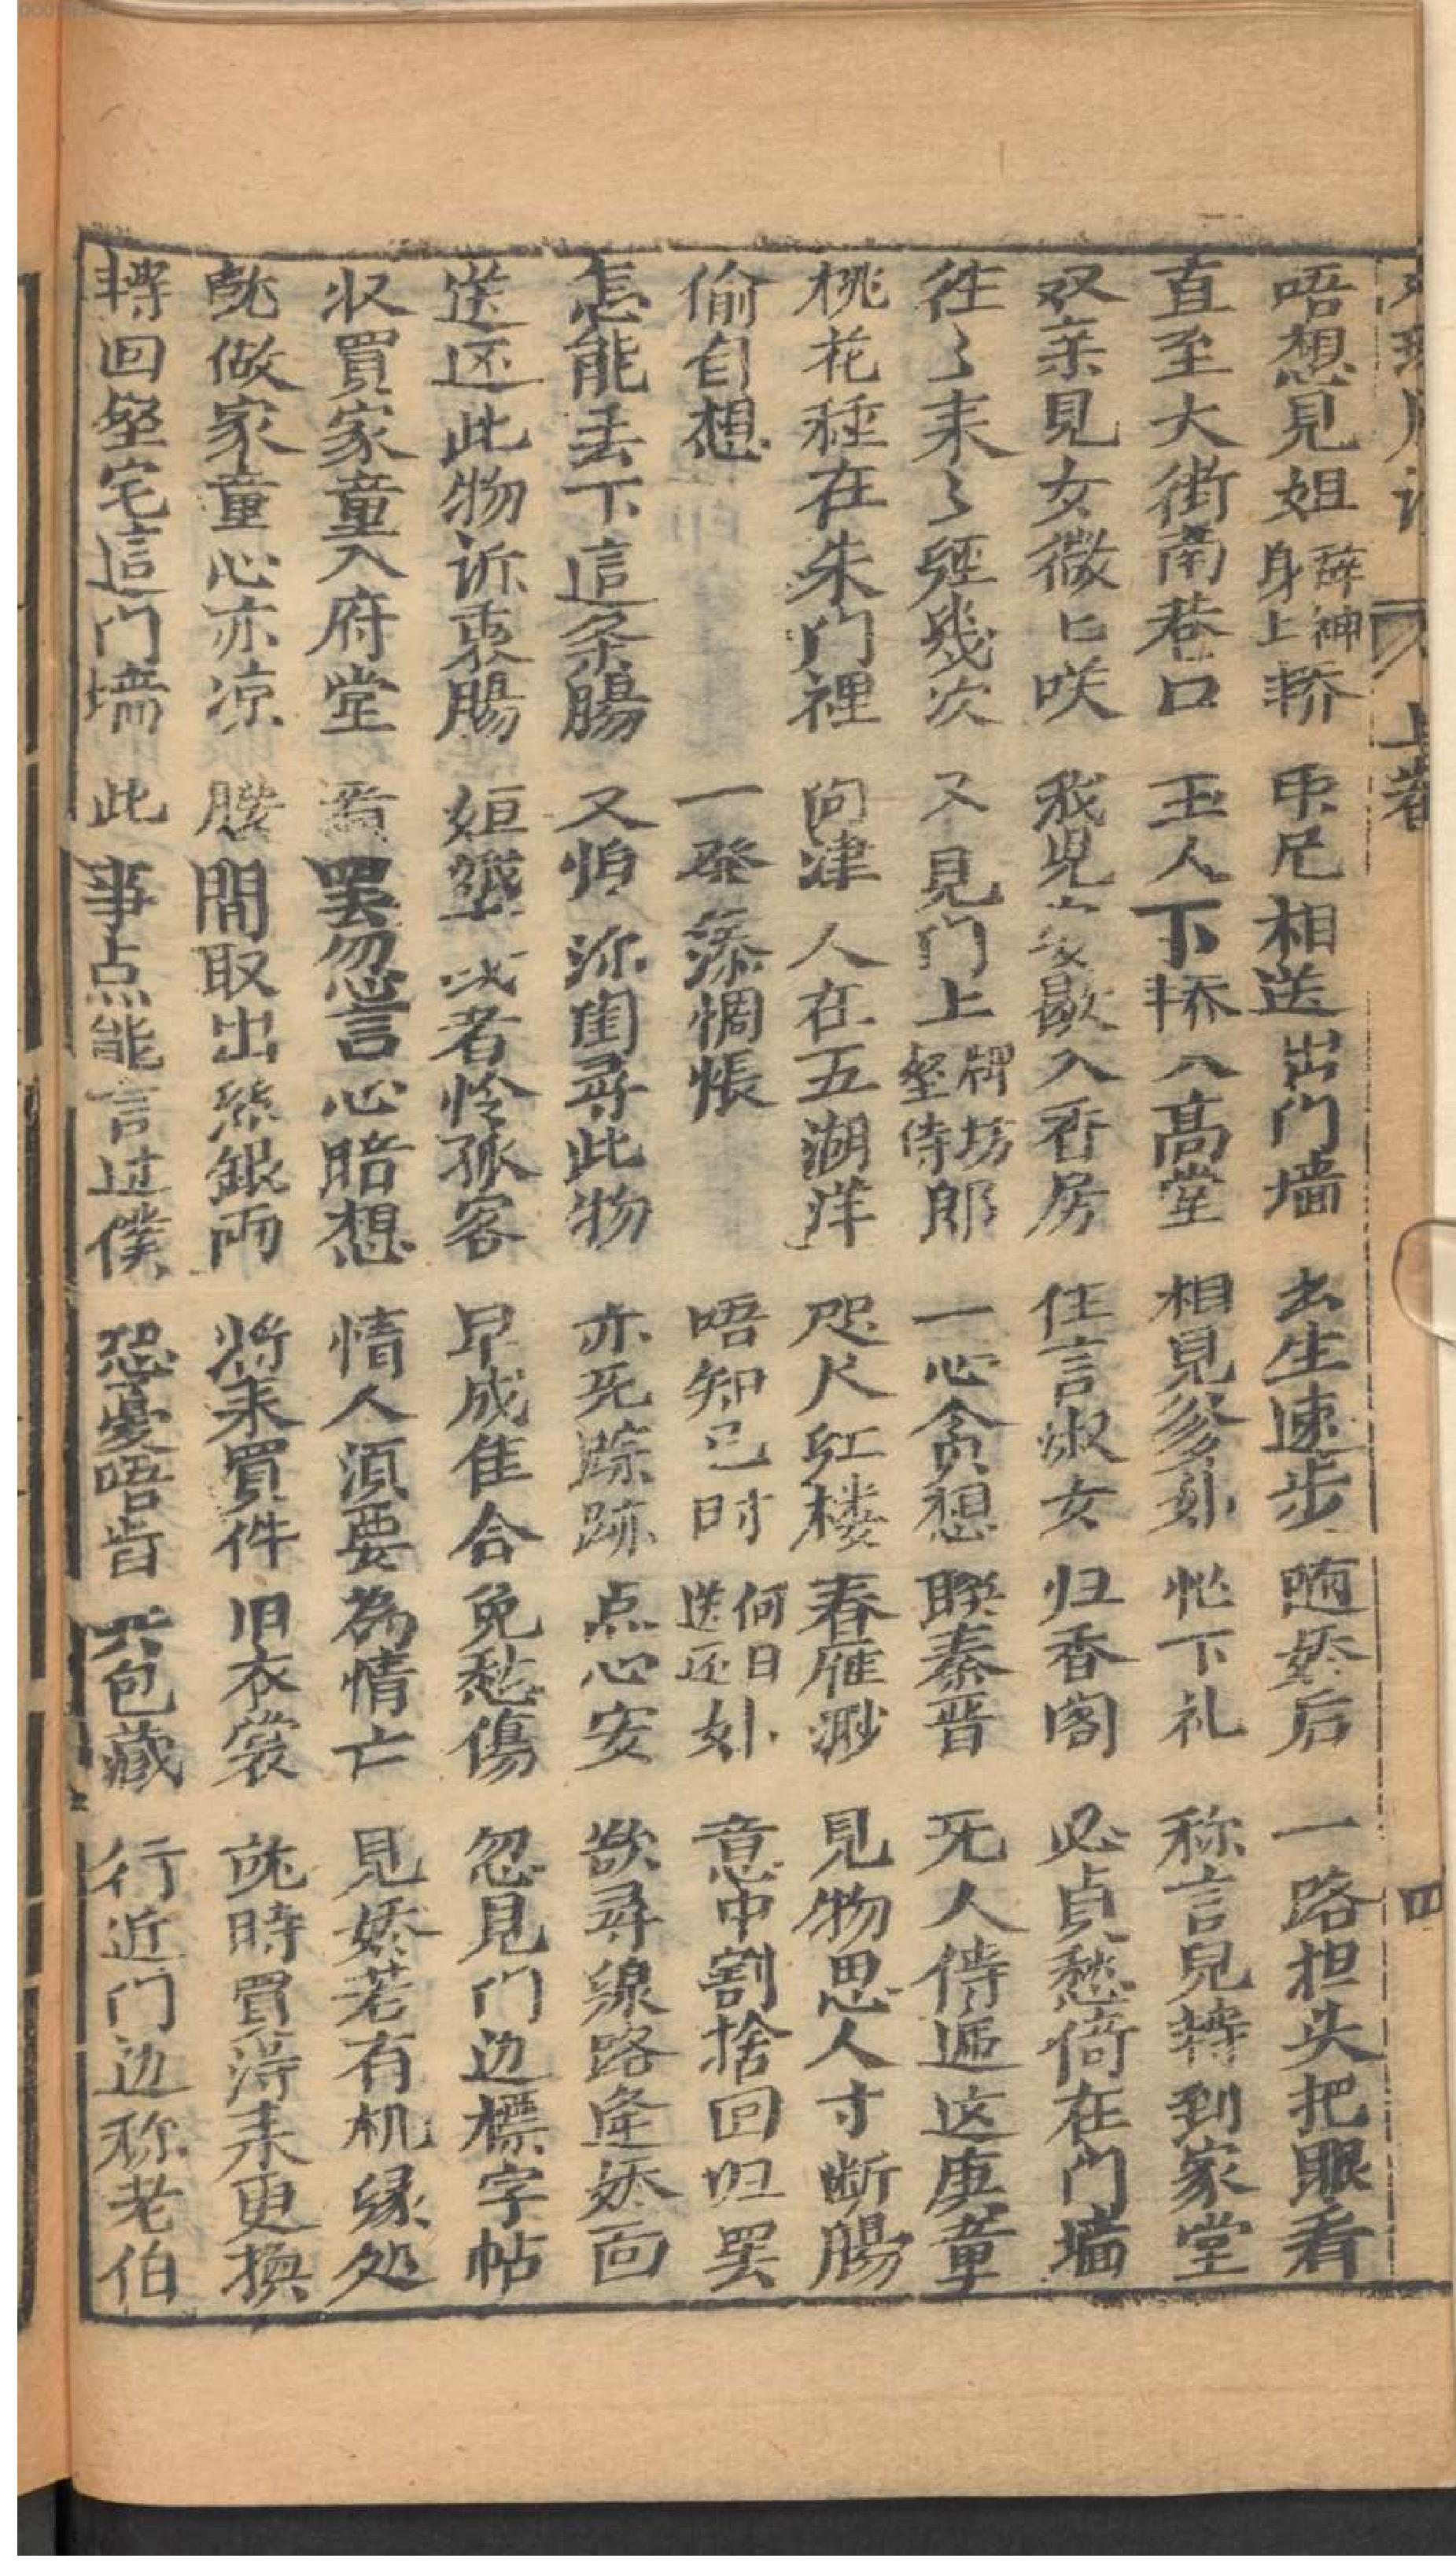 上卷 四
唔想見姐辞神身上轎 帀尼相送出门墙 玄生速步随娇后 一路担头把眼看
直至大街南巷口 玉人下轎入高堂 相見爹妳忙下礼 称言兒轉到家堂
双亲見女微匕咲 我兒安歇入香房 任言淑女归香阁 必貞愁倚在门墙
往了来了經幾次 又見门上牌坊坐侍郎 一心贪想聮秦晋 无人傳逓这庚章
桃花種在朱门裡 问津人在五湖洋 咫尺红楼春雁渺 見物思人寸断腸
偷自想 一發添惆悵 唔知已时何日送还妳 意中割捨回归罢
怎能丢下這条腸 又怕你闺尋此物 亦无踪跡点心安 欲尋線路逢娇面
送还此物訴衷腸 姮娥或者怜孤客 早成隹合免愁傷 忽見门边標字帖
收買家童入府堂 罢忽言心暗想 情人須要為情亡 見娇若有机缘处
就做家童心亦凉 腰間取出絲銀両 将来買件旧衣裳 就時買淂来更換
轉回坐宅這门墙 此事点能言过僕 恐憂唔肯共包藏 行近门边称老伯